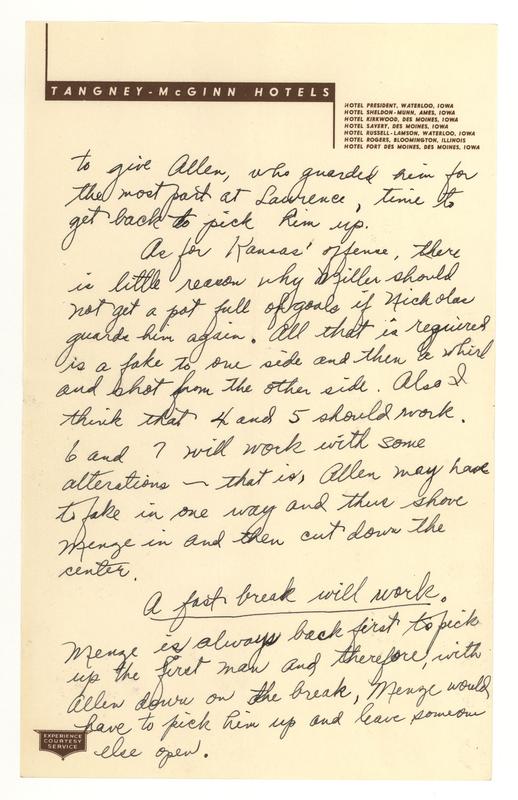 TANGNEY-McGINN HOTELS
HOTEL PRESIDENT, WATERLOO, IOWA
HOTEL SHELDON-MUNN, AMES, IOWA
HOTEL KIRKWOOD, DES MOINES, IOWA
HOTEL SAVERY, DES MOINES, IOWA
HOTEL RUSSELL-LAMSON, WATERLOO, IOWA
HOTEL ROGERS, BLOOMINGTON, ILLINOIS
HOTEL FORT DES MOINES, DES MOINES, IOWA
to give Allen, who guarded him for
the most part at Lawrence, time to
get back to pick him up.
As for Kansas' offense, there
is little reason why Miller should
not get a pot full of goals if Nicholas
guards him again. All that is required
is a fake to one side and then a whirl
and shot from the other side. Also I
think that 4 and 5 should work.
6 and 7 will work with some
alterations – that is, Allen may have
to fake in one way and thus shove
Menze in and then cut down the
center.
A fast break will work.
Menze is always back first to pick
up the first man and therefore, with
Allen down on the break, Menze would
have to pick him up and leave someone
else open.
EXPERIENCE
COURTESY
SERVICE